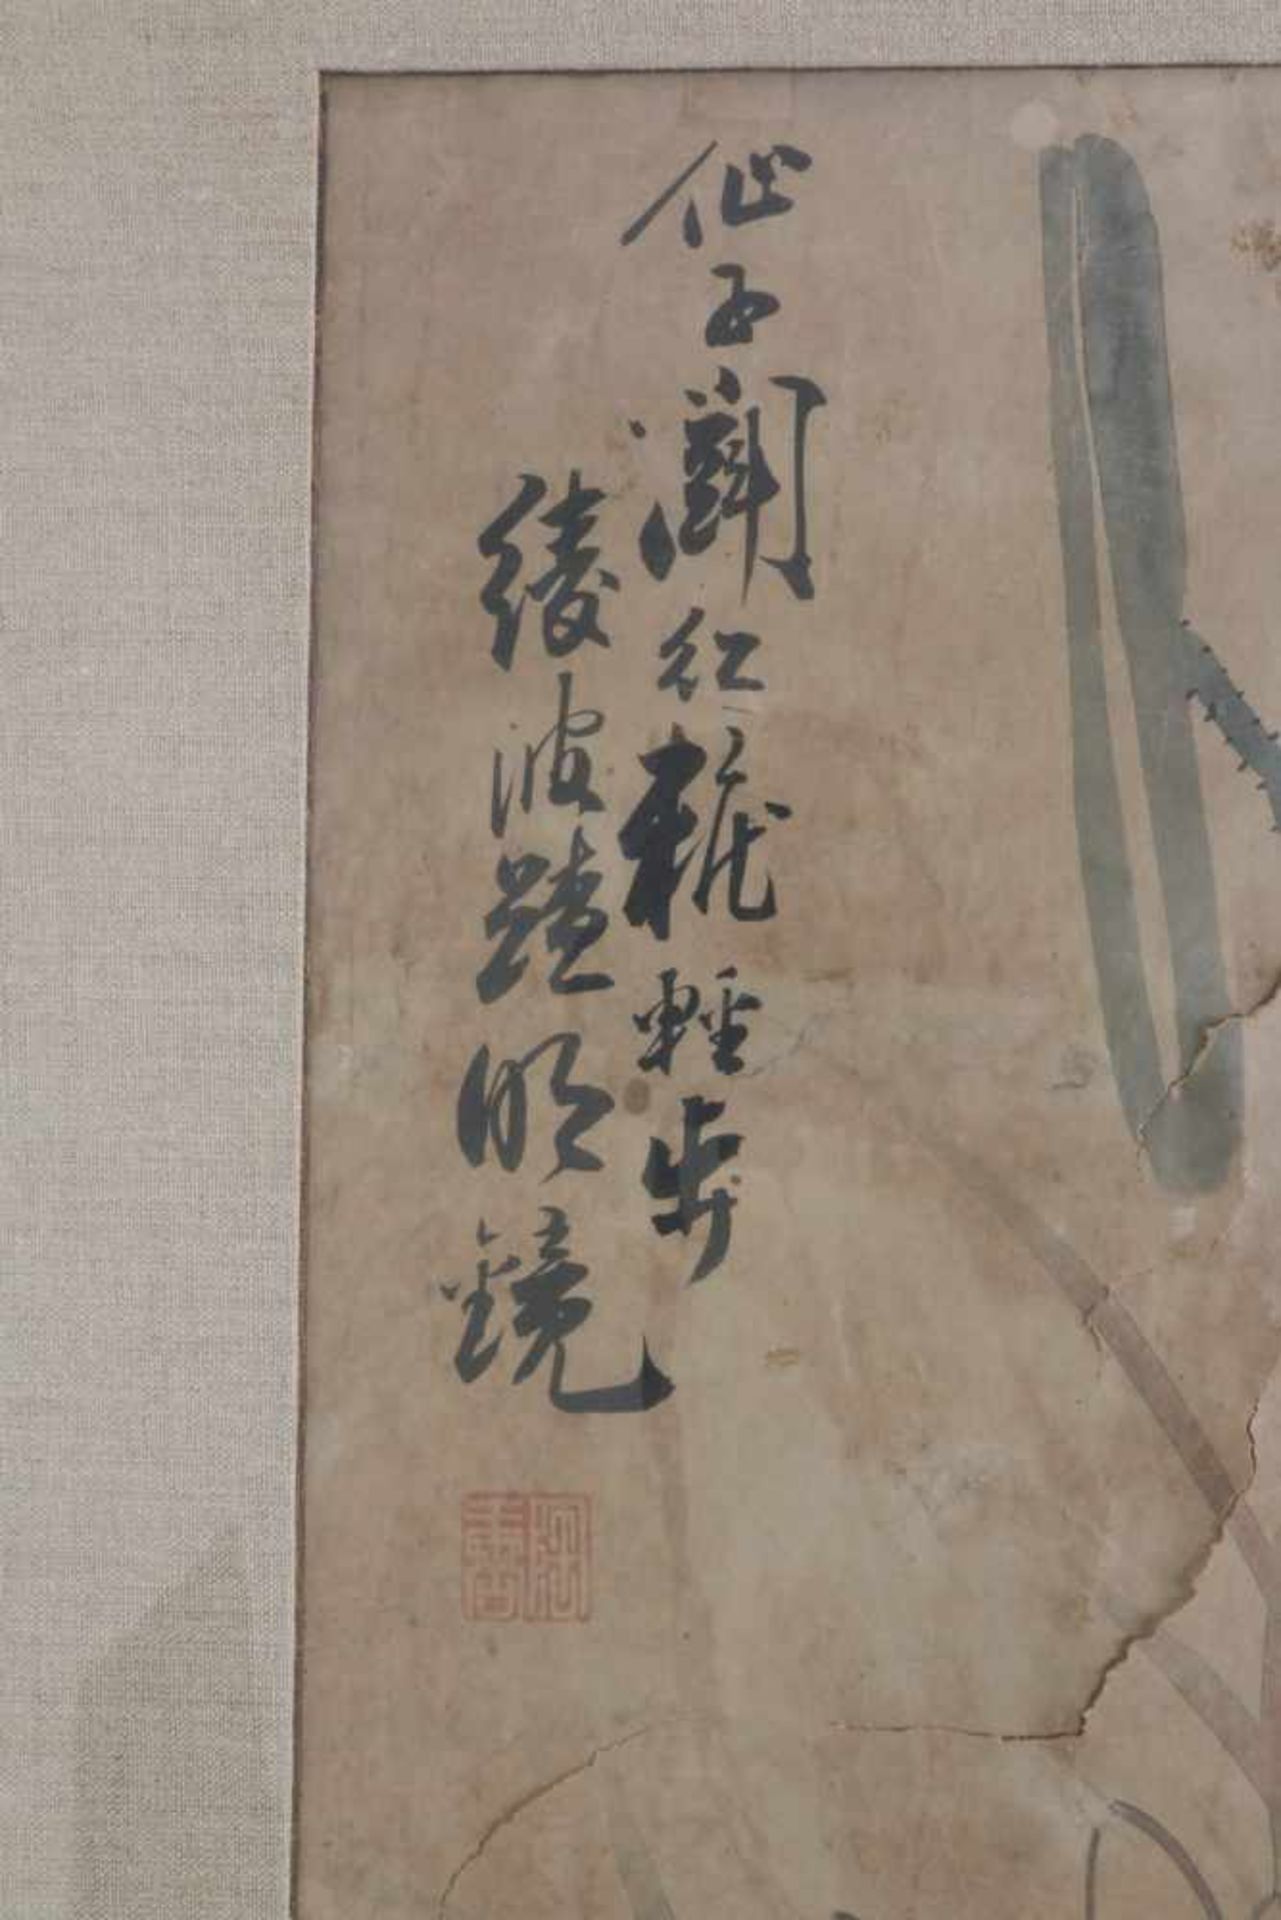 仙子鬭紅粧輕步
綾波踏明鏡